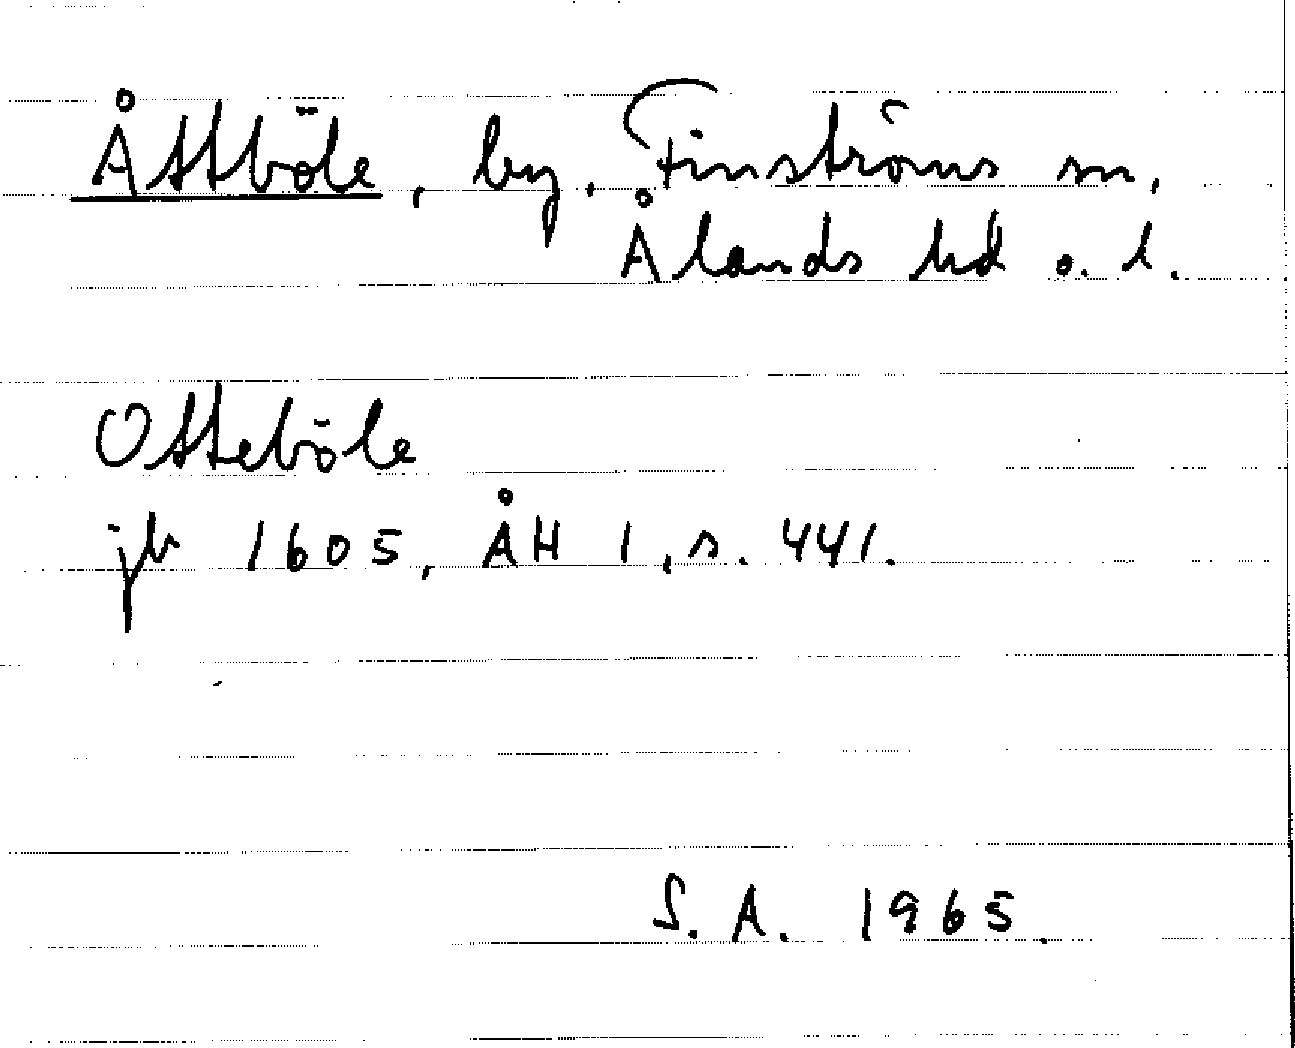 Åttböle, by. Finströms sn,
Ålands hd o. l.
Otteböle
jb 1605, ÅH 1, s. 441.
S. A. 1965.